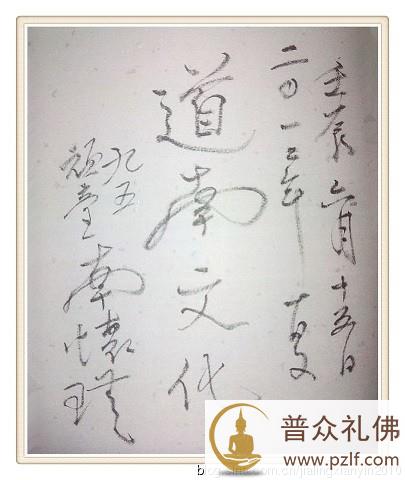 壬辰六月十五日
二〇一二年 夏
道南文化
九五
頑童南懷瑾
普众礼佛
www.pzlf.com